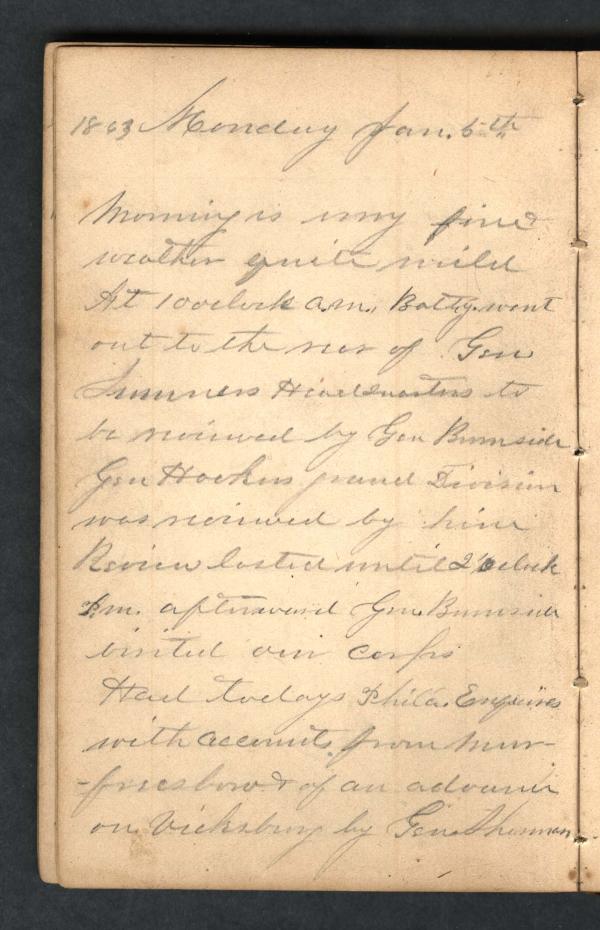 1863 Monday Jan. 5th
Morning is very fine
weather quite mild
At 10 oclock a.m. Batty. went
out to the rear of Gen
Sumners Headquarters to
be reviewed by Gen Burnside
Gen Hookers grand Division
was reviewed by him
Review lasted until 2 oclock
P.m. afterward Gen. Burnside
visited our corps
Had todays Phila. Enquires
with accounts from Mur-
-freesboro & of an advance
on Vicksburg by Gen. Sherman